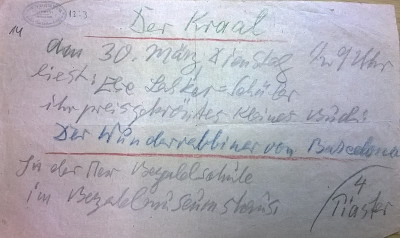 1223
14
Der Kraal
am 30. März Dienstag ½ 9 Uhr
liest: Else Lasker-Schüler
ihr preisgekröntes kleines Buch:
Der Wunderrabbiner von Barcelona
In der Bezalelschule
im Bezalelmuseumshaus
4
Piaster